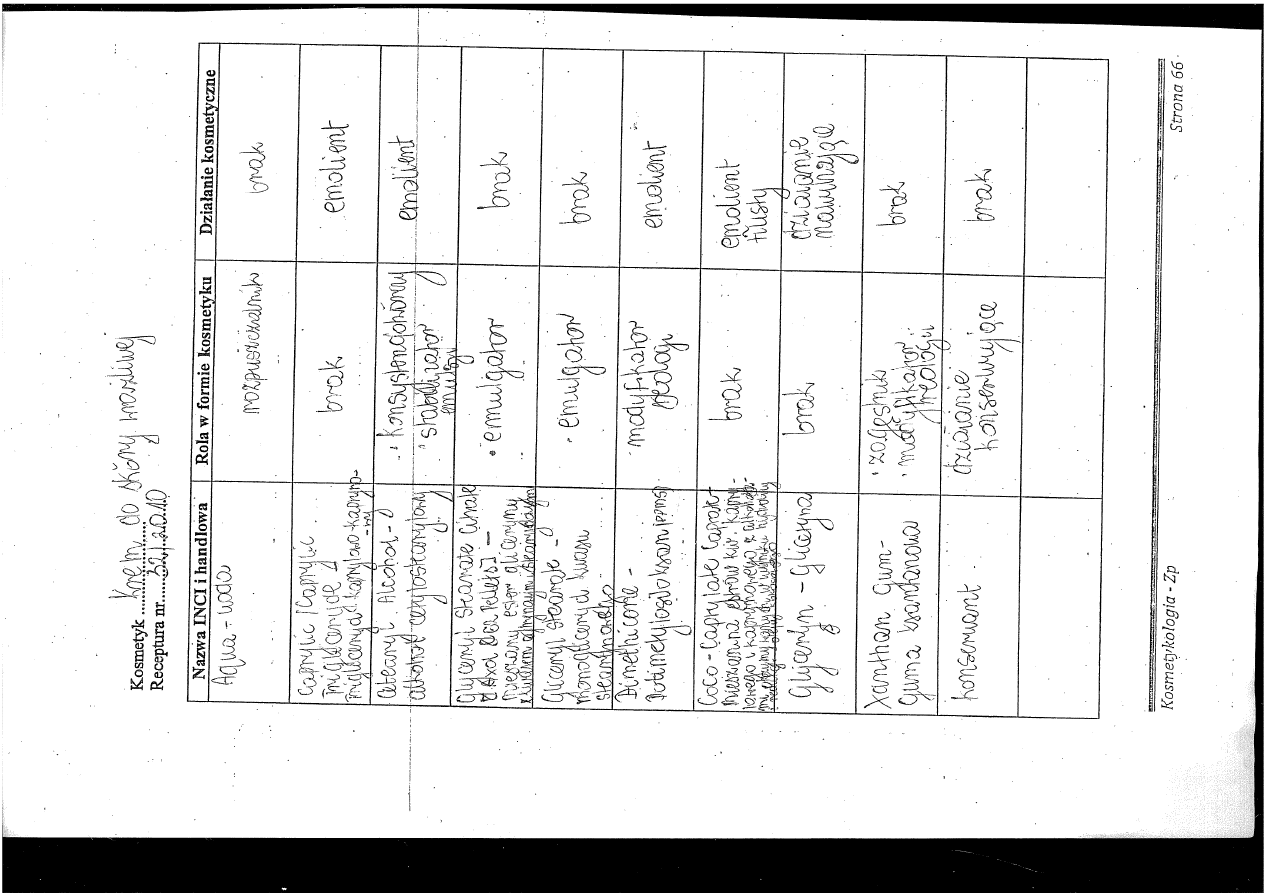 Kosmetyk Krem do skóry wrażliwej
Receptura nr. 32/2010
Nazwa INCI i handlowa
Rola w formie kosmetyku
Działanie kosmetyczne
Aqua - woda
rozpuszczalnik
brak
Caprylic / Capryic
triglyceride
triglicerydy kaprylowo-kapryno-
brak
emolient
Cetearyl Alcohol -
alkohol cetylostearylowy
· konsystencjotwórczy
· stabilizator
emulsji
emolient
Glyceryl Stearate Citrate
mieszany ester gliceryny
z kwasem cytrynowym i stearynowym
· emulgator
brak
Gliceryl Stearate -
monogliceryd kwasu
stearynowego
· emulgator
brak
Dimethicone -
Polimetylosiloksan
modyfikator
reologii
emolient
Coco-Caprylate Caprate -
mieszanina estrów kw. kapry-
lowego i kaprynowego z alkohola-
brak
emolient
tłusty
Glyceryn - Gliceryna
brak
działanie
nawilżające
Xanthan Gum -
Guma ksantanowa
· zagęstnik
· modyfikator
reologii
brak
Konserwant
działanie
konserwujące
brak
Kosmetykologia - Zp
Strona 66